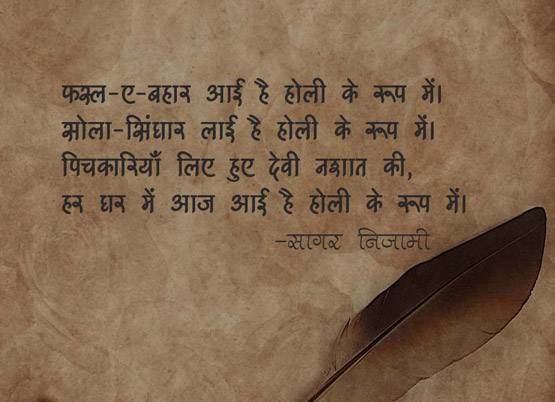 फस्ल-ए-बहार आई है होली के रूप में।
सोला-सिंघार लाई है होली के रूप में।
पिचकारियाँ लिए हुए देवी नशात की,
हर घर में आज आई है होली के रूप में।
-सागर निजामी